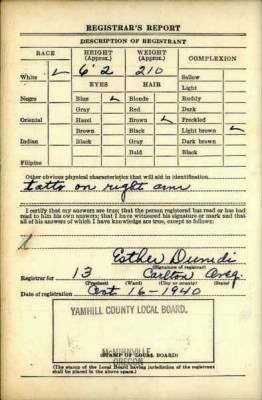 REGISTRAR'S REPORT
DESCRIPTION OF REGISTRANT
RACE HEIGHT (Approx.) WEIGHT (Approx.) COMPLEXION
White ✓ 6' 2 210 Sallow
EYES HAIR Light
Negro Blue ✓ Blonde Ruddy
Gray Red Dark
Oriental Hazel Brown ✓ Freckled
Brown Black Light brown ✓
Indian Black Gray Dark brown
Bald Black
Filipino
Other obvious physical characteristics that will aid in identification
tatto on right arm
I certify that my answers are true; that the person registered has read or has had
read to him his own answers; that I have witnessed his signature or mark and that
all of his answers of which I have knowledge are true, except as follows:
Esther
(Signature of registrar)
Registrar for 13 Carlton Oreg.
(Precinct) (Ward) (City or county) (State)
Date of registration Oct 16-1940
YAMHILL COUNTY LOCAL BOARD.
McMINNVILLE
OREGON
(STAMP OF LOCAL BOARD)
(The stamp of the Local Board having jurisdiction of the registrant
shall be placed in the above space.)